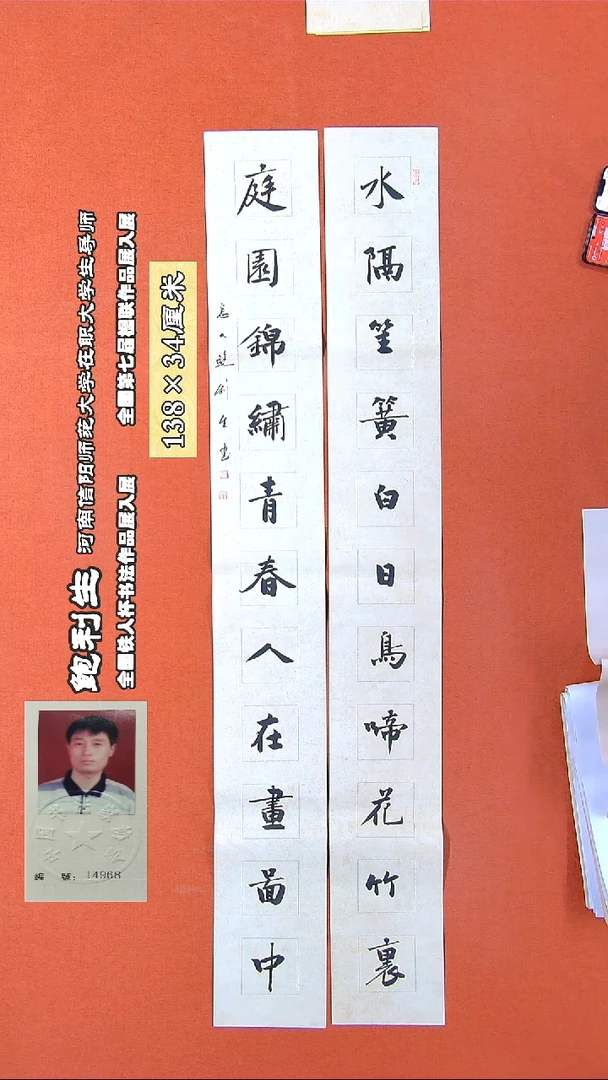 水隔笙簧白日鳥啼花竹裏
庭園錦繡青春人在畫啚中
利生書
138×34厘米
鲍利生 河南信阳师范大学在职大学生导师
全国铁人杯书法作品展入展 全国第七届楹联作品展入展
编 號: 14968